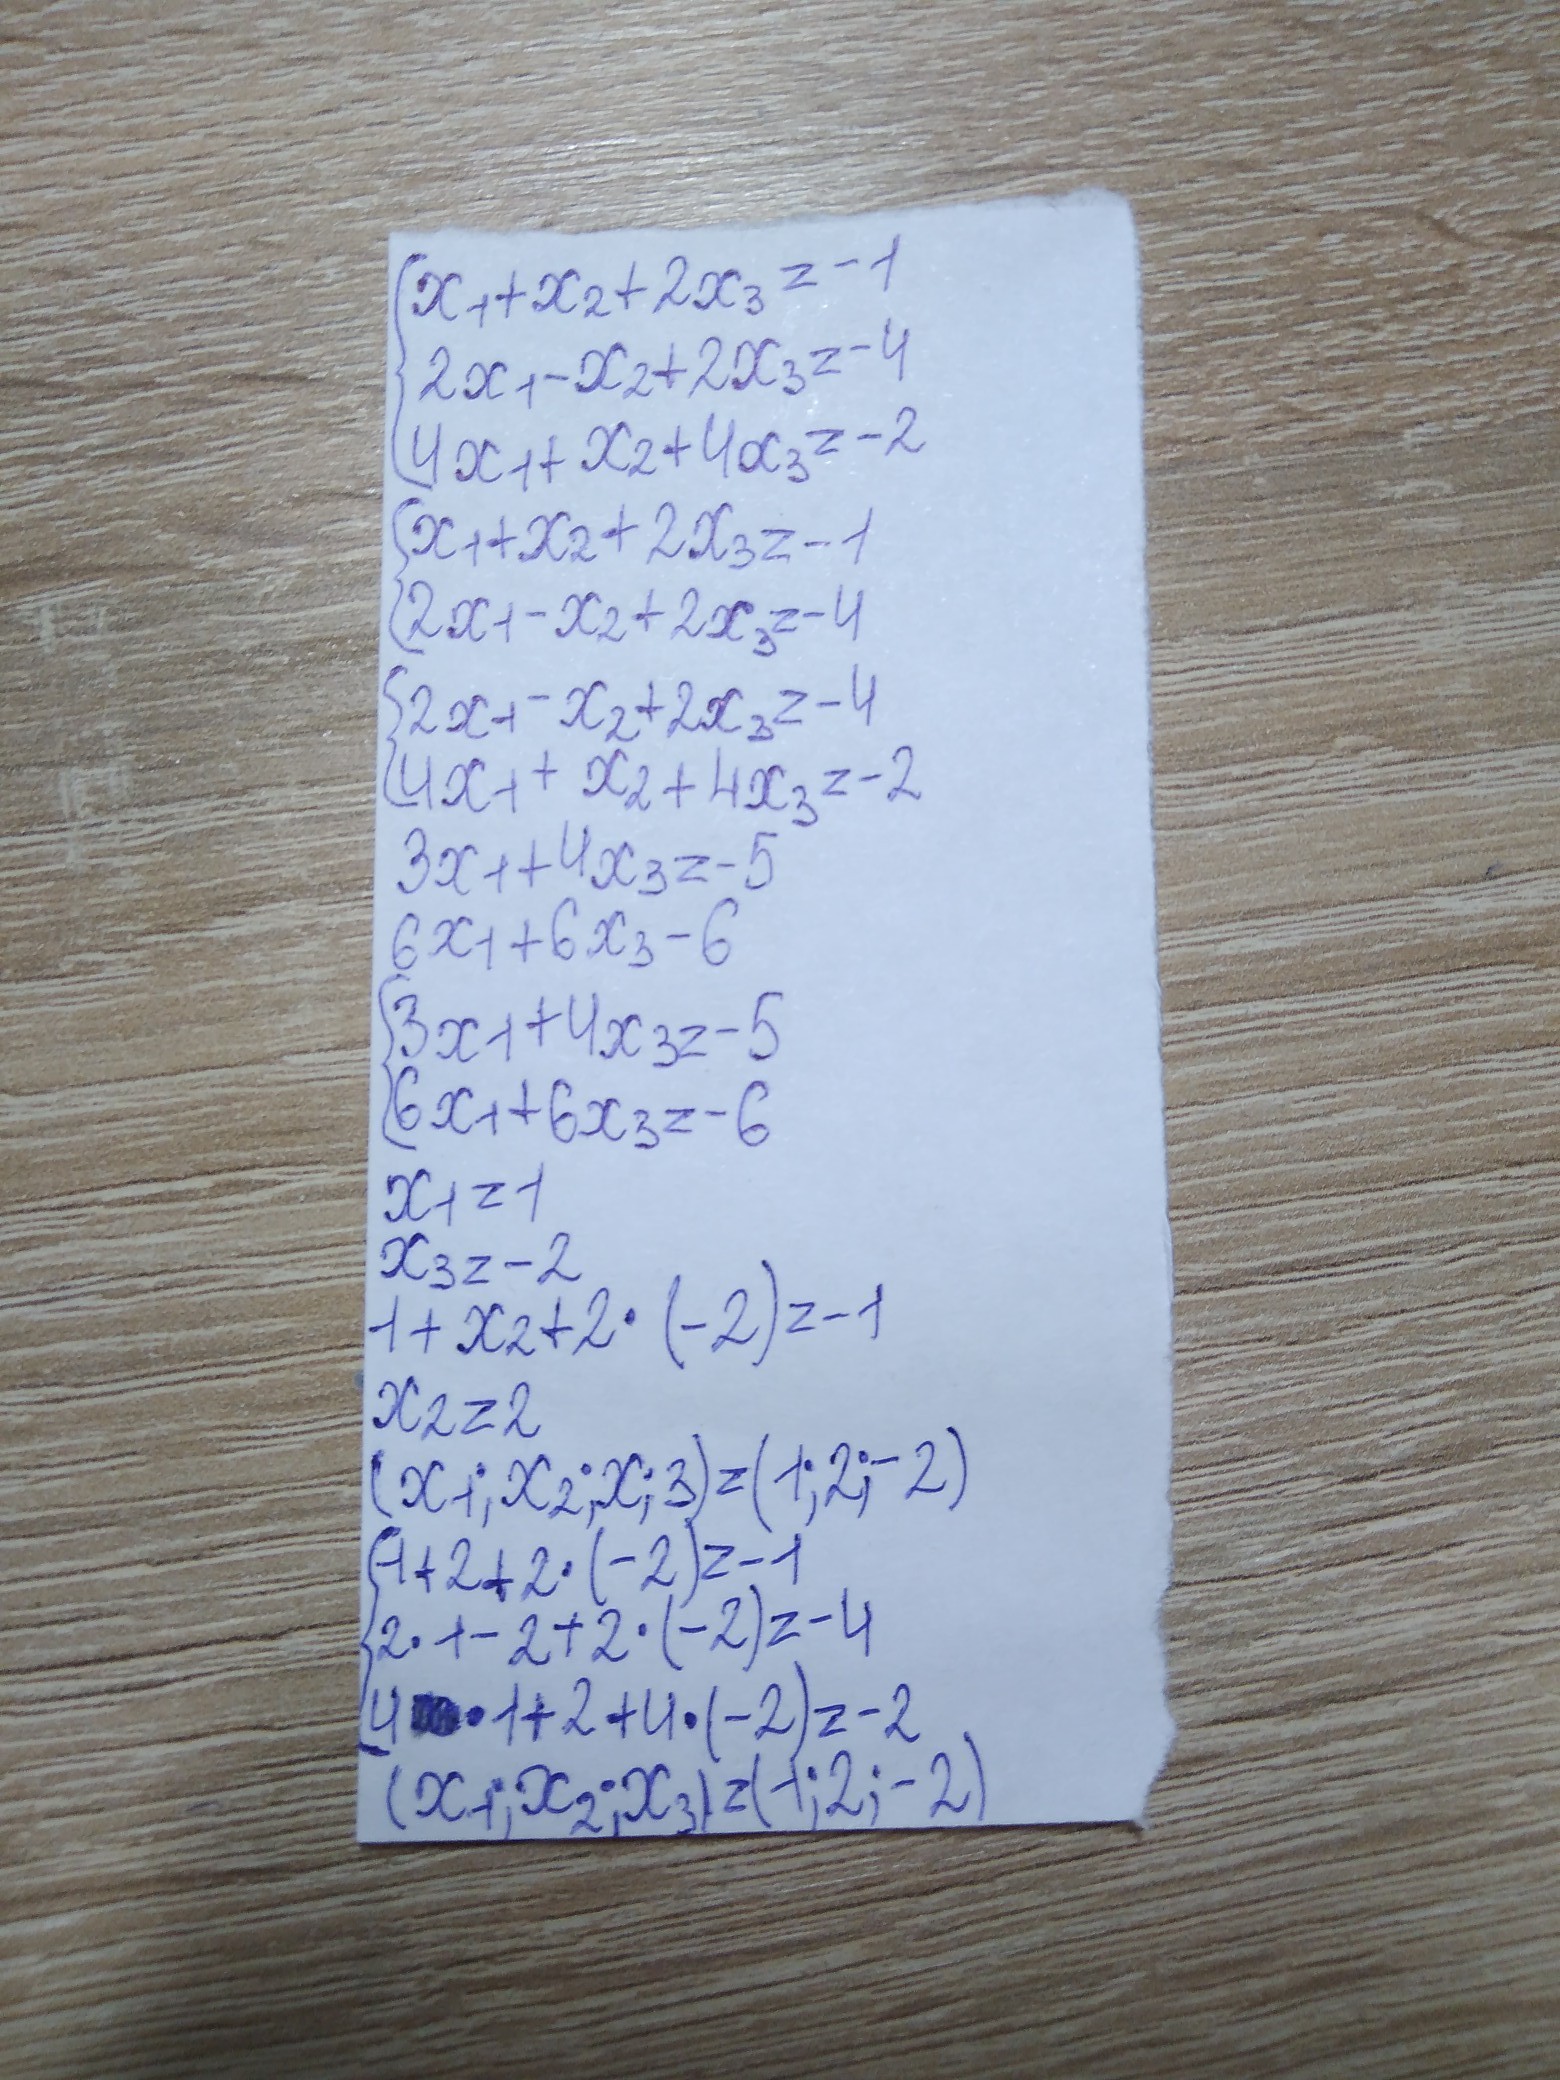 x₁+x₂+2x₃=-1
2x₁-x₂+2x₃=-4
4x₁+x₂+4x₃=-2
x₁+x₂+2x₃=-1
2x₁-x₂+2x₃=-4
2x₁-x₂+2x₃=-4
4x₁+x₂+4x₃=-2
3x₁+4x₃=-5
6x₁+6x₃-6
3x₁+4x₃=-5
6x₁+6x₃=-6
x₁=1
x₃=-2
1+x₂+2·(-2)=-1
x₂=2
(x₁;x₂;x;3)=(1;2;-2)
1+2+2·(-2)=-1
2·1-2+2·(-2)=-4
4·1+2+4·(-2)=-2
(x₁;x₂;x₃)=(1;2;-2)